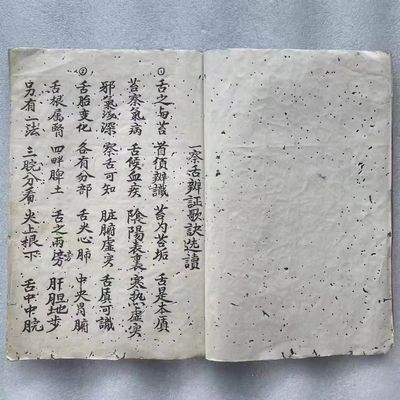 一察舌辨証歌訣选讀
① 舌之与苔 首須辨識 苔为苔垢 舌是本貭
苔察氣病 舌候血疾 陰陽表裏 寒热虛实
邪氣浅深 察舌可知 脏腑虛实 舌貭可識
② 舌胎变化 各有分部 舌尖心肺 中央胃腑
舌根属腎 四畔脾土 舌之两旁 肝胆地步
另有一法 三脘分看 尖上根下 舌中中脘